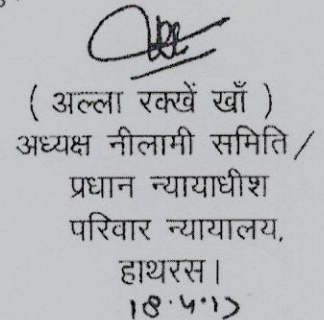 ( अल्ला रक्खें खाँ )
अध्यक्ष नीलामी समिति /
प्रधान न्यायाधीश
परिवार न्यायालय,
हाथरस।